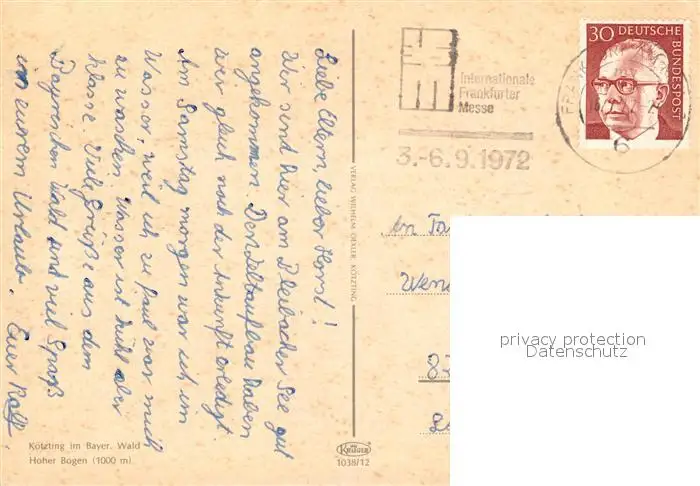 Liebe Eltern, lieber Horst!
Wir sind hier am Bleibacher See gut
angekommen. Den Zeltaufbau haben
wir gleich nach der Ankunft erledigt.
Am Samstag morgen war ich im
Wasser, weil ich zu faul war mich
zu waschen. Wasser ist kühl aber
klasse. Viele Grüße aus dem
Bayrischen Wald und viel Spaß
in eurem Urlaub. Euer Ralf.
Kötzting im Bayer. Wald
Hoher Bogen (1000 m)
VERLAG WILHELM OEXLER KÖTZTING
KRÜGER
1038/12
Internationale
Frankfurter
Messe
3.-6.9.1972
30 DEUTSCHE
BUNDESPOST
6
An
privacy protection
Datenschutz